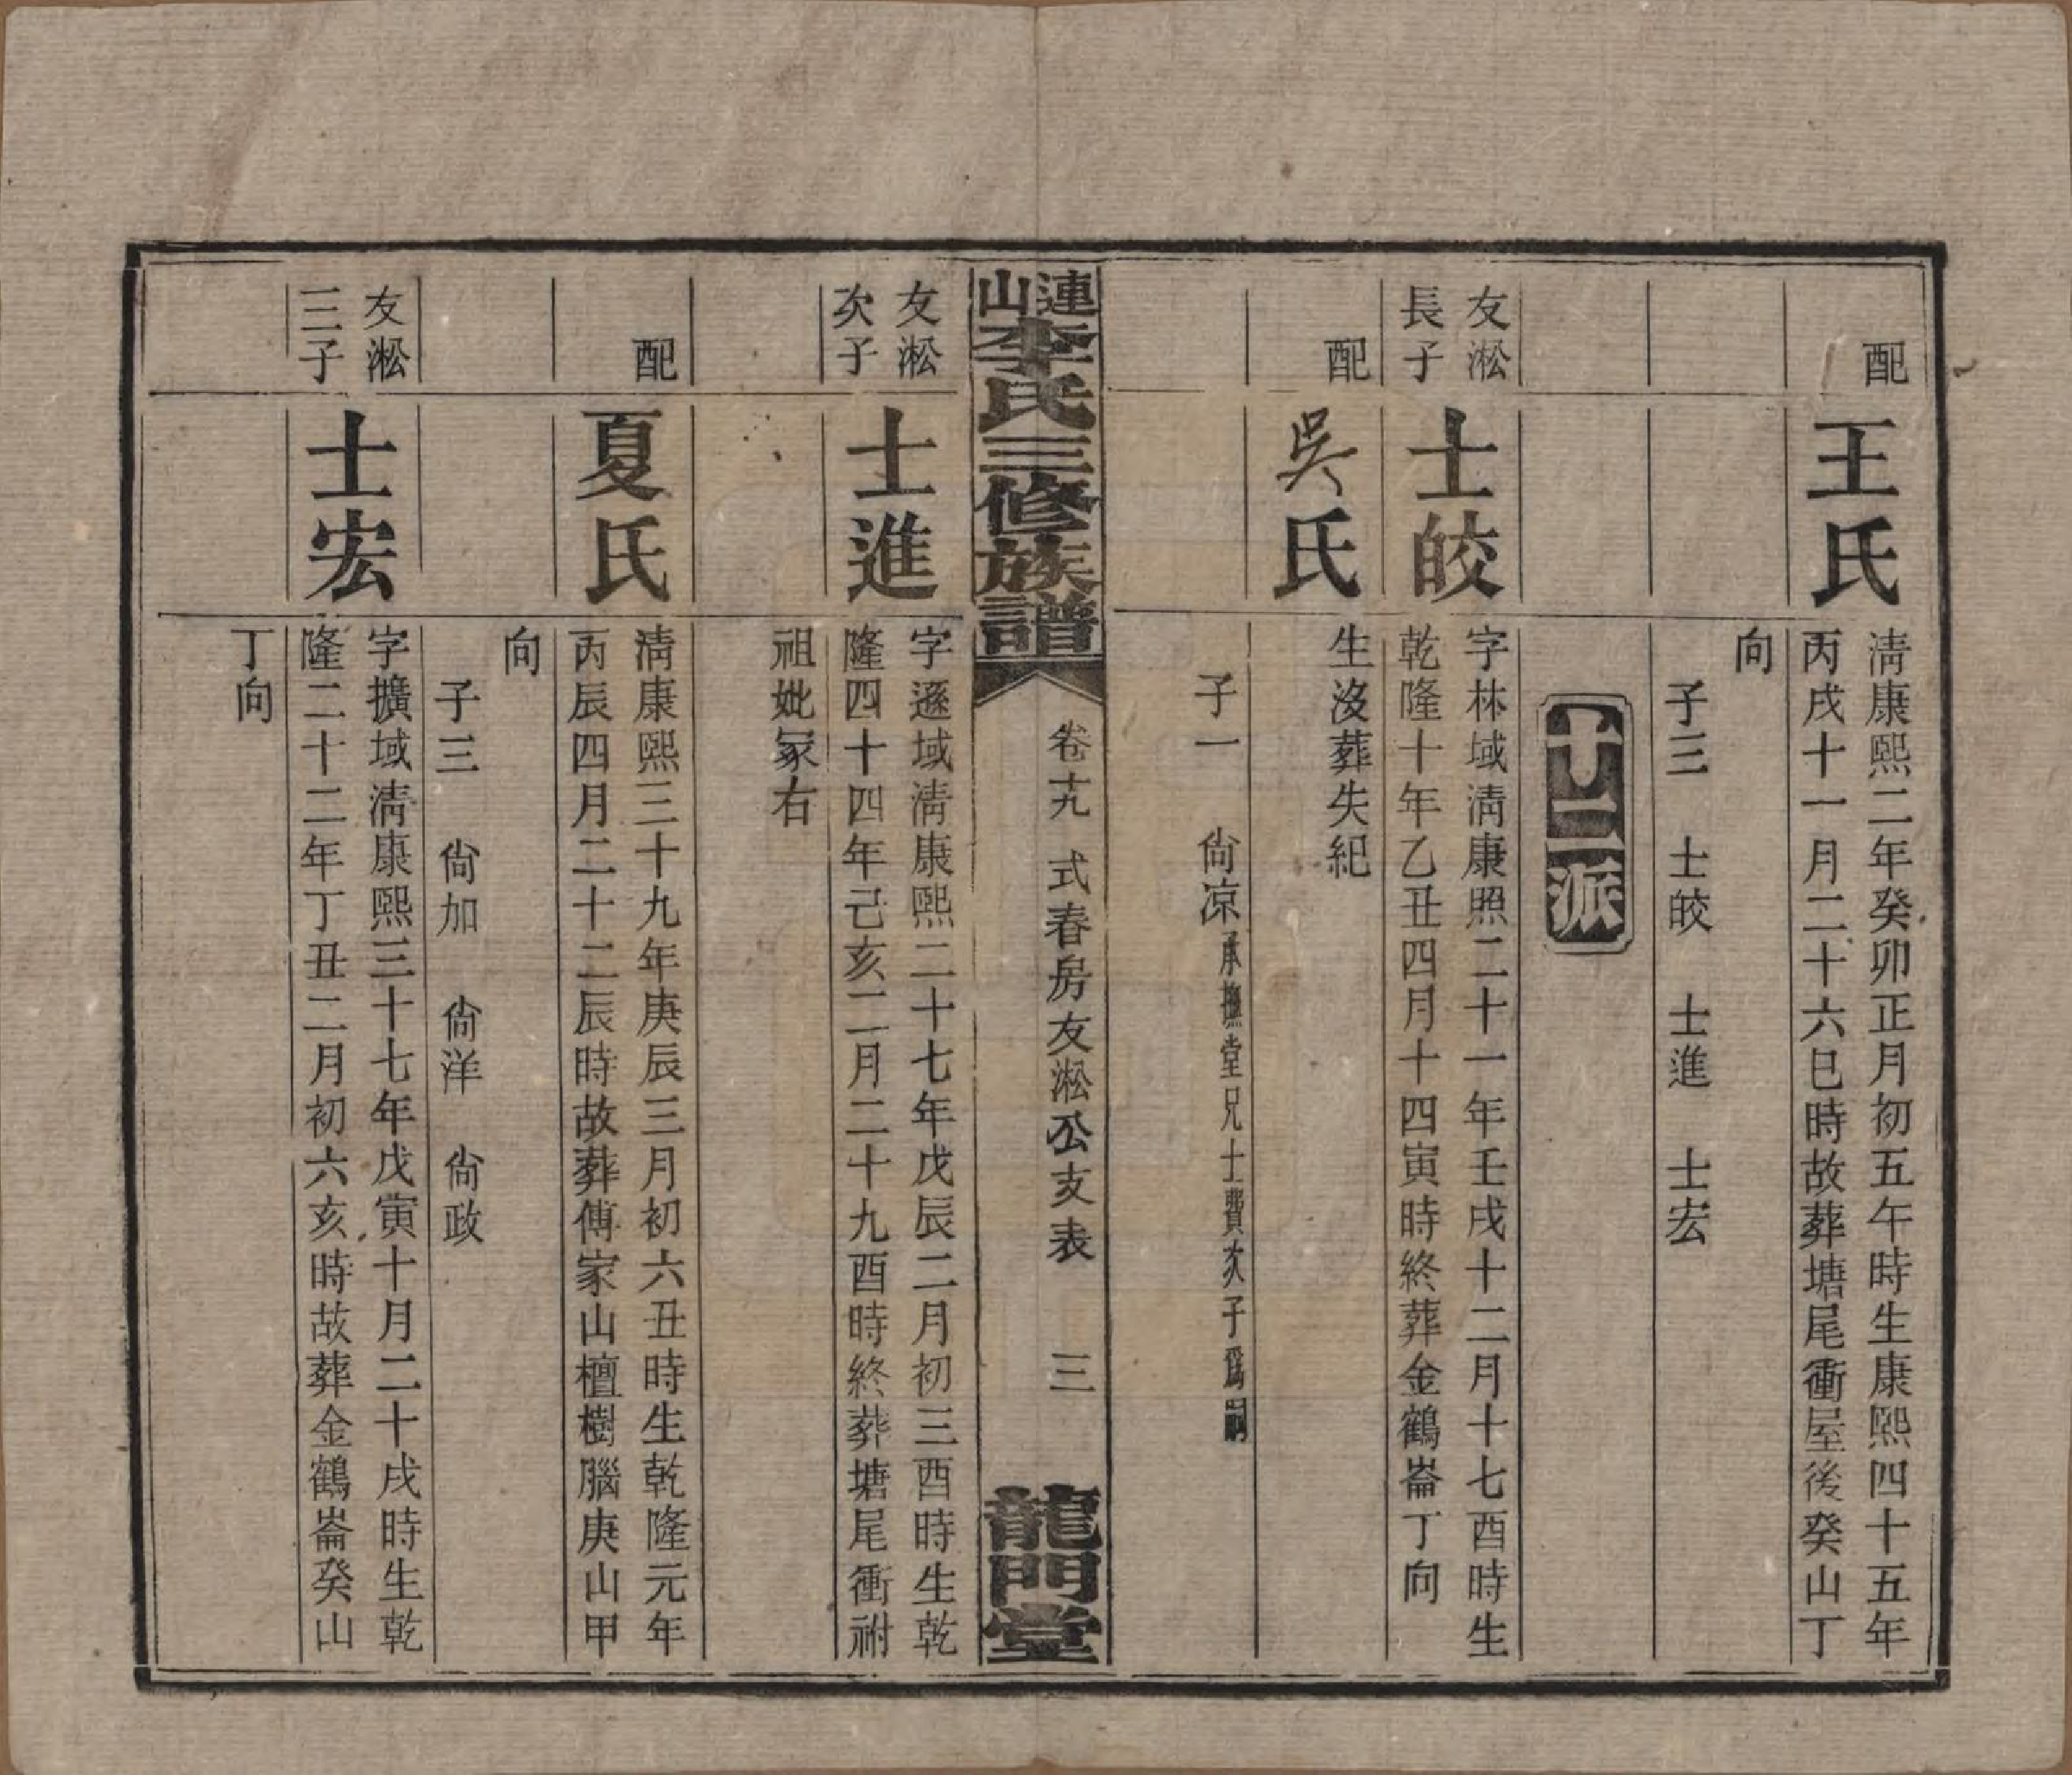 配
王氏
淸康熙二年癸卯正月初五午時生康熙四十五年
丙戌十一月二十六巳時故葬塘尾衝屋後癸山丁
向
子三　士皎　士進　士宏
十二派
友淞
長子
士皎
字林域淸康照二十一年壬戌十二月十七酉時生
乾隆十年乙丑四月十四寅時終葬金鶴崙丁向
配
吳氏
生沒葬失紀
子一　尙凉承撫堂兄士賛次子爲嗣
連山李氏三修族譜
卷十九　式春房友淞公支表　三
龍門堂
友淞
次子
士進
字遜域淸康熙二十七年戊辰二月初三酉時生乾
隆四十四年己亥二月二十九酉時終葬塘尾衝祔
祖妣冢右
配
夏氏
淸康熙三十九年庚辰三月初六丑時生乾隆元年
丙辰四月二十二辰時故葬傅家山檀樹腦庚山甲
向
子三　尙加　尙洋　尙政
友淞
三子
士宏
字擴域淸康熙三十七年戊寅十月二十戌時生乾
隆二十二年丁丑二月初六亥時故葬金鶴崙癸山
丁向